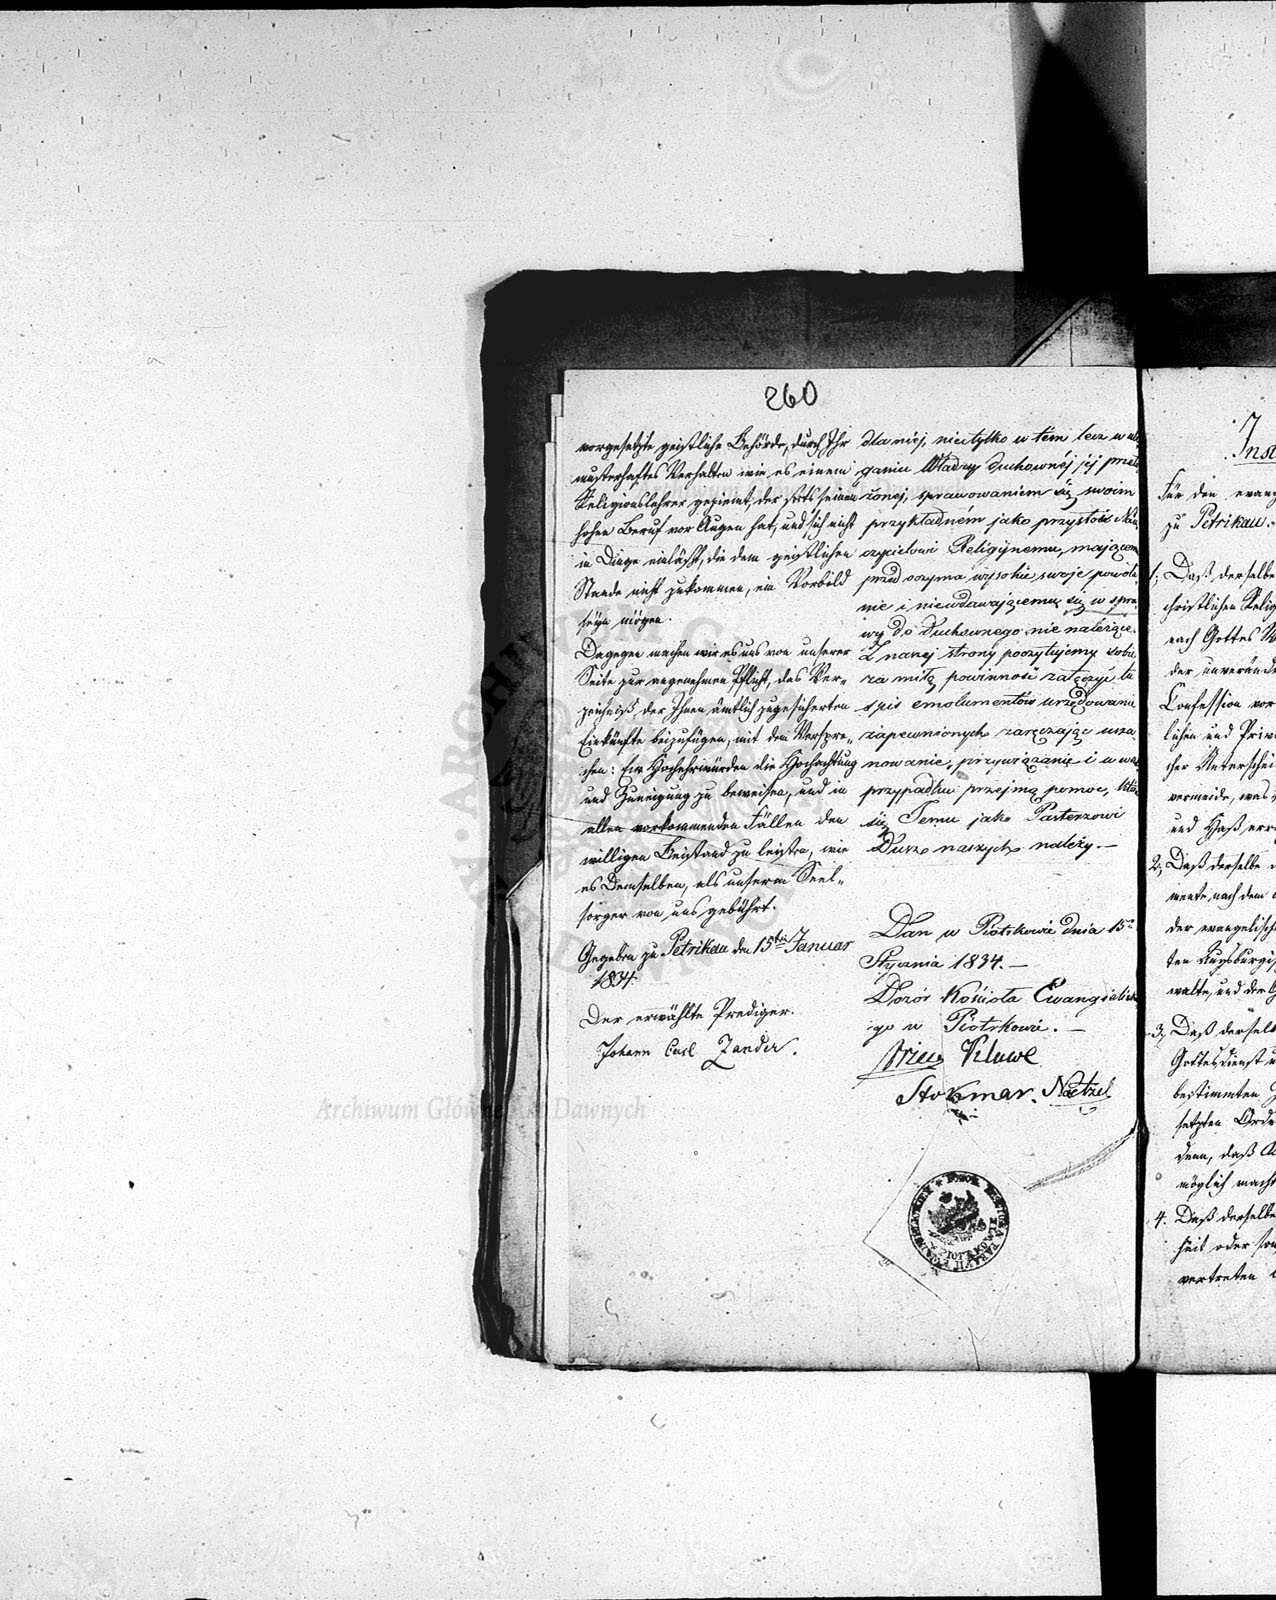 260
vorgesetzte geistliche Behörde, durch Ihr
musterhaftes Verhalten wie es einem
Religionslehrer geziemt, der stets seinen
hohen Beruf vor Augen hat, und sich nicht
in Dinge einläßt, die dem geistlichen
Stande nicht zukommen, ein Vorbild
seyn mögen.
Dagegen machen wir es uns von unserer
Seite zur angenehmen Pflicht, das Ver-
zeichniß, der Ihnen ämtlich zugesicherten
Einkünfte beizufügen, mit dem Verspre-
chen: Ew Hochehrwürden die Hochachtung
und Zuneigung zu beweisen, und in
allen vorkommenden Fällen den
willigen Beistand zu leisten, wie
es Demselben, als unserm Seel-
sorger von uns gebührt.
Gegeben zu Petrikau den 15ten Januar
1834.
Der erwählte Prediger.
Johann Carl Zander.
dla niej, nietylko w tem lecz w ule
ganiu Władzy duchownéj jej prze
żonej, sprawowaniem się swoim
przykładném jako przystoi Nau
czycielowi Religijnemu, mającem
przed oczyma wysokie swoje powoła
nie i niewdawającemu się w spra
wy do duchownego nie należące.
Z naszej strony poczytujemy sobie
za miłą powinność załączyć tu
spis emolumentów urzędowanie
zapewnionych zaręczając usza
nowanie, przywiązanie i w
przypadku przejmą pomoc, któ
się Jemu jako Pasterzowi
Dusz naszych należy.—
Dan w Piotrkowie dnia 15º
Stycznia 1834.—
Dozór Kościoła Ewangielick
go w Piotrkowie.—
Kluwe
Stokmar. Netzel
Archiwum Główne Akt Dawnych
Inst
Für den evang
zu Petrikau.
1; Daß derselbe
christlichen Relig
nach Gottes W
der unverände
Confession vor
lichen und Priv
cher Unterschei
vermeide, was
und Haß erre
2; Daß derselbe
mente, nach dem
der evangelisch
ten Augsburgis
walte, und der
3; Daß derselbe
Gottesdienst
bestimmten
setzten Ord
denn, daß
möglich mach
4. Daß derselbe
heit oder son
vertreten